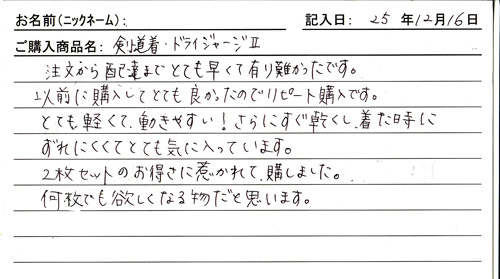 お名前(ニックネーム): 記入日: 25 年 12 月 16 日
ご購入商品名: 剣道着・ドライジャージⅡ
注文から配達までとても早くて有り難かったです。
以前に購入してとても良かったのでリピート購入です。
とても軽くて、動きやすい!さらにすぐ乾くし、着た時に
ずれにくくてとても気に入っています。
2枚セットのお得さに惹かれて、購しました。
何枚でも欲しくなる物だと思います。